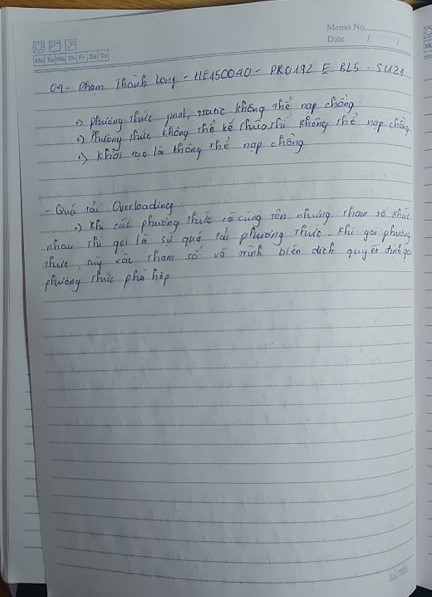 Memo No.
Date / /
Mo Tu We Th Fr Sa Su
09 - Phạm Thành Long - HE150040 - PRO192 E BL5 - SU21
+) phương thức final, static không thể nạp chồng
+) Phương thức không thể kế thừa thì không thể nạp chồng
+) khởi tạo là không thể nạp chồng
- Quá tải Overloading
+) Khi các phương thức có cùng tên nhưng tham số khác
nhau thì gọi là sự quá tải phương thức. Khi gọi phương
thức, tùy vào tham số và trình biên dịch quyết định gọi
phương thức phù hợp